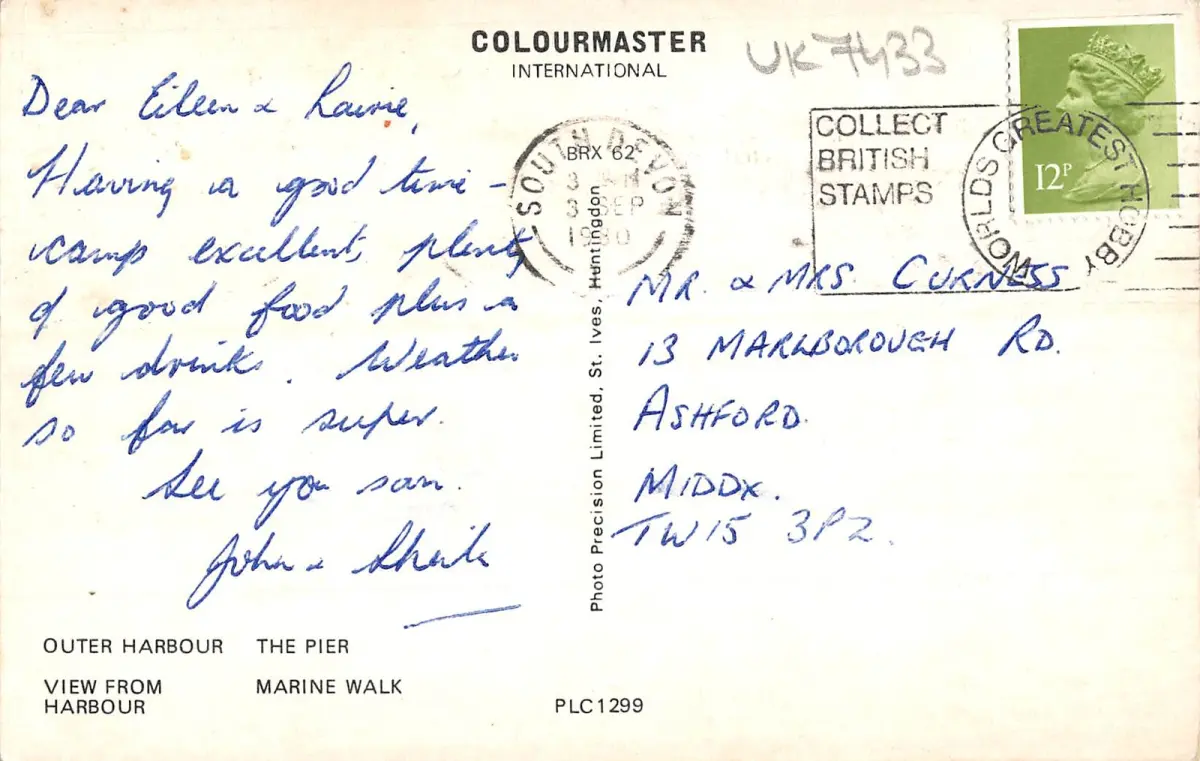 COLOURMASTER
INTERNATIONAL
UK7433
Dear Eileen &
Having a good time -
camp excellent, plenty
of good food plus a
few drinks. Weather
so far is super.
See you soon.
John & Sheila
OUTER HARBOUR THE PIER
VIEW FROM MARINE WALK
HARBOUR
BRX 62
SOUTH DEVON
3 SEP
1980
Photo Precision Limited, St. Ives, Huntingdon
PLC1299
COLLECT
BRITISH
STAMPS
WORLDS GREATEST HOBBY
12P
MR. & MRS. CURNESS
13 MARLBOROUGH RD.
ASHFORD.
MIDDX.
TW15 3PZ.